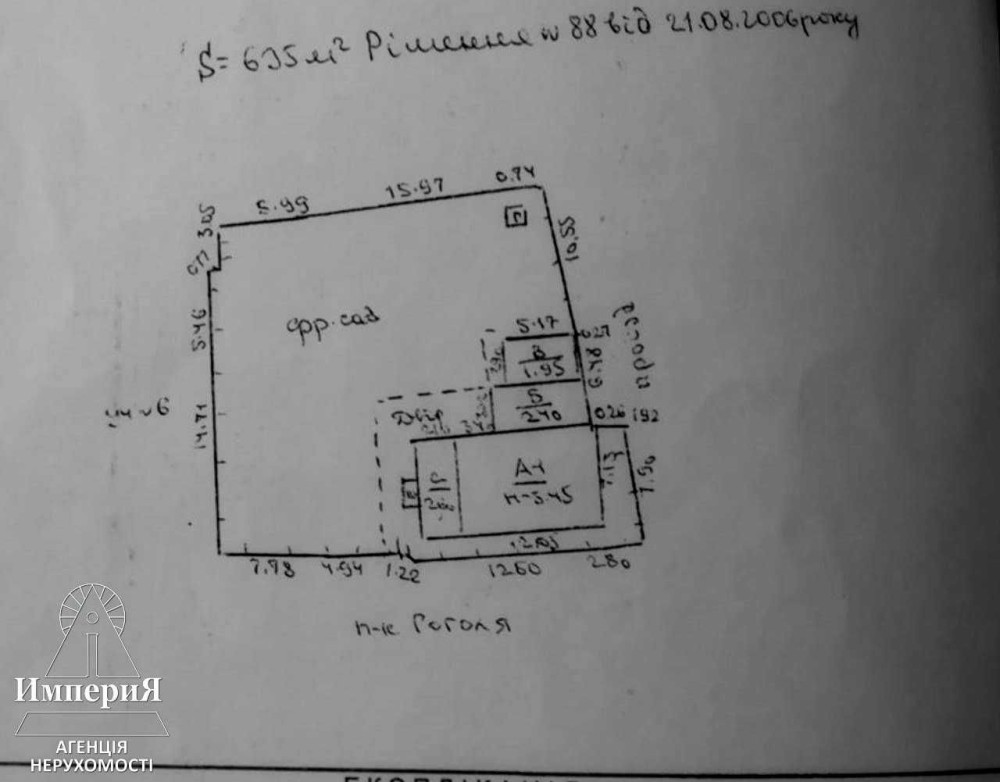 S= 635 м² Рішення № 88 від 21.08.2006 року
5.99 15.97 0.74
3.05
10.55
5.46
фр. сад
5.17
В
1.95
6.48
Б
2.40
Двір
0.26 1.92
14.71
А-1
н-3.45
7.13
7.90
12.05
7.78 4.94 1.22 12.60 2.80
п-к Гоголя
ИмпериЯ
АГЕНЦІЯ
НЕРУХОМОСТІ